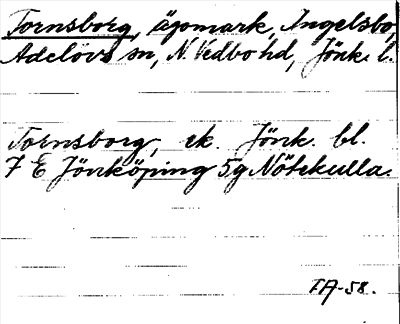 Tornsborg, ägomark, Ingelsbo,
Adelövs sn, N. Vedbo hd, Jönk. l.
Tornsborg, ek. Jönk. bl.
7 E Jönköping 5g Nötekulla.
TA-58.